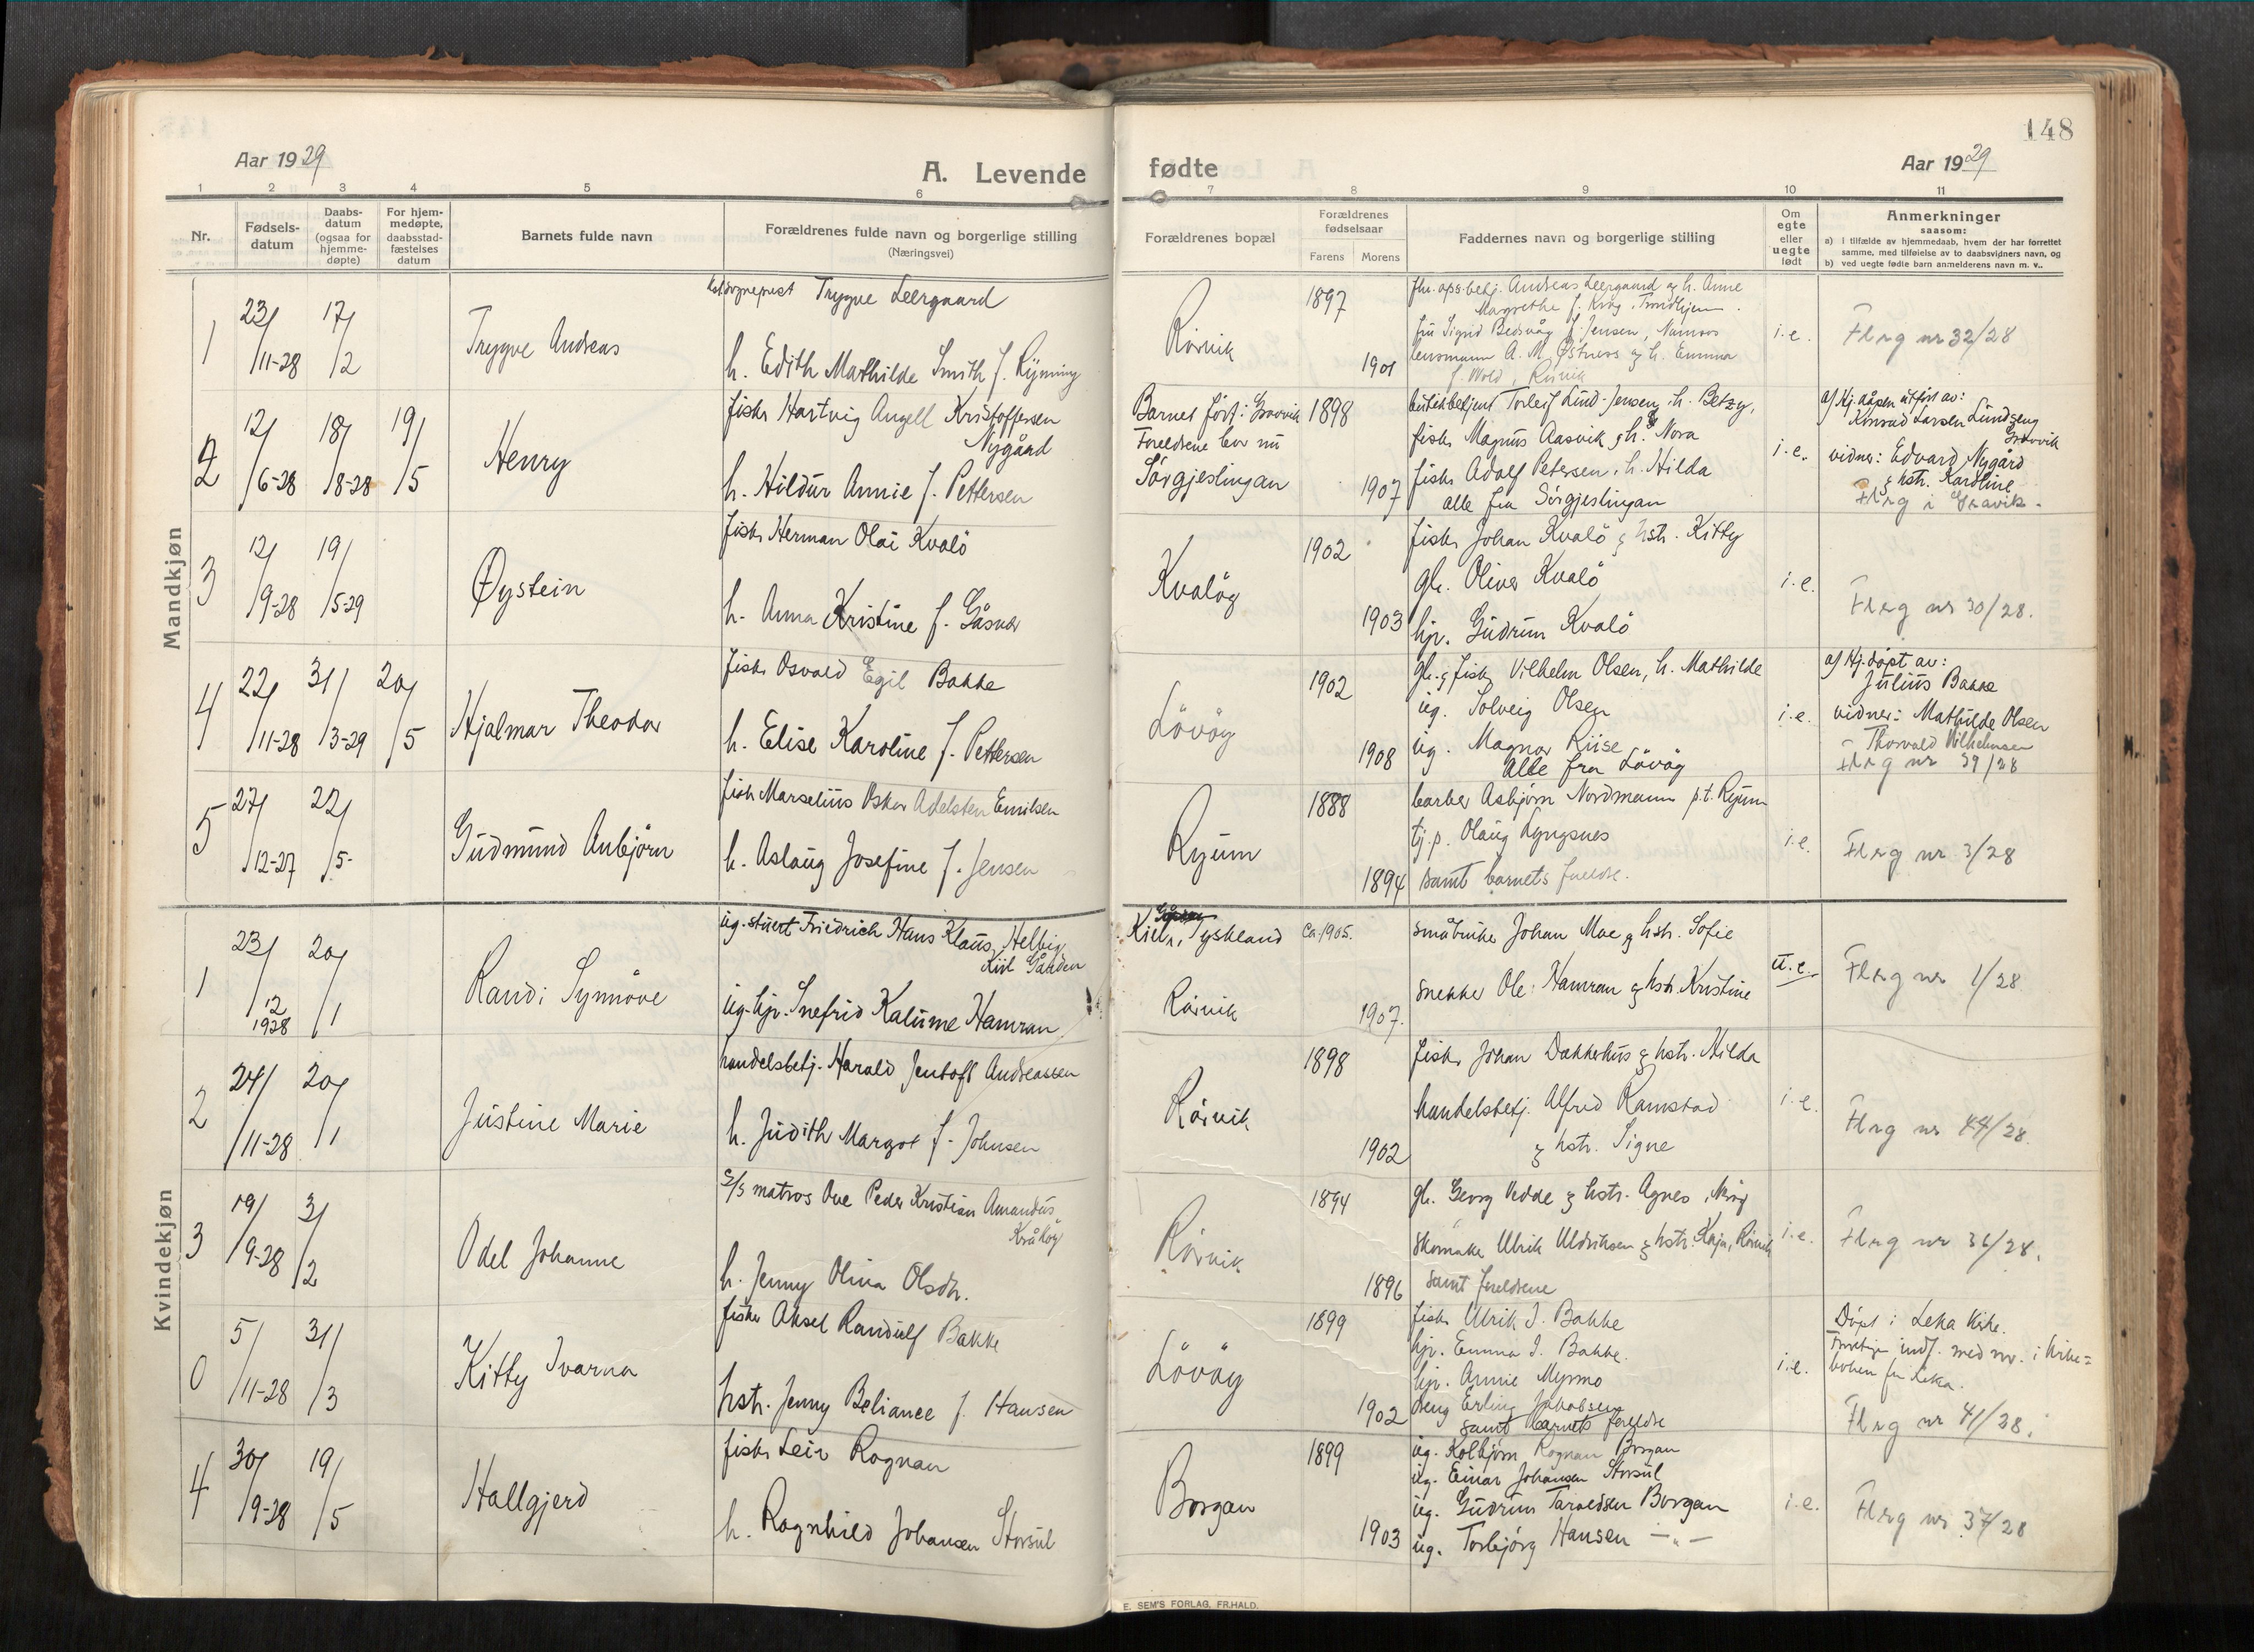 148
Aar 1929
A. Levende
fødte
Aar 1929
1 2 3 4 5 6 7 8 9 10 11
Nr.
Fødsels-
datum
Daabs-
datum
(ogsaa for
hjemme-
døpte)
For hjem-
medøpte,
daabsstad-
fæstelses
datum
Barnets fulde navn
Forældrenes fulde navn og borgerlige stilling
(Næringsvei)
Forældrenes bopæl
Forældrenes
fødselsaar
Farens Morens
Faddernes navn og borgerlige stilling
Om
egte
eller
uegte
født
Anmerkninger
saasom:
a) i tilfælde av hjemmedaab, hvem der har forrettet
samme, med tilføielse av to daabsvidners navn, og
b) ved uegte fødte barn anmelderens navn m. v..
Mandkjøn
1
23/11-28
17/2
Trygve Andreas
Trygve Leergaard
h. Edith Mathilde Smith f. Rynning
Rörvik
1897
1901
Andreas Leergaard & h. Anne
Margrethe f. Krog, Trondhjem.
fru Sigrid Bedsvåg f. Jensen, Namsos
lensmann A. M. Østnes & h. Emma
f. Wold, Rörvik
i.e.
Flrg nr 32/28
2
12/6-28
18/8-28
19/5
Henry
fisk. Hartvig Angell Kristoffersen
Nygård
h. Hildur Annie f. Pettersen
Barnet født i Gravvik
Foreldrene bor nu
Sörgjeslingan
1898
1907
butikkbetjent Torleif Lind-Jensen, h. Betzy,
fisk. Magnus Aasvik & h. Nora
fisk. Adolf Petersen, h. Hilda
alle fra Sörgjeslingan
i.e.
a/ Hj.dåpen utfört av:
Konrad Larsen Lundseng
Gravvik
vidner: Edvard Nygård
& hstr. Karoline
Flrg i Gravik.
3
12/9-28
19/5-29
Øystein
fisk. Herman Olai Kvalö
h. Anna Kristine f. Gåsvær
Kvalöy
1902
1903
fisk. Johan Kvalö & hstr. Kitty
gbr. Oliver Kvalö
hjv. Gudrun Kvalö
i.e.
Flrg nr 30/28.
4
22/11-28
31/3-29
20/5
Hjalmar Theodor
fisk. Osvald Egil Bakke
h. Elise Karoline f. Pettersen
Lövöy
1902
1908
gbr. & fisk. Vilhelm Olsen, h. Mathilde
ug. Solveig Olsen
ug. Magnar Riise
Alle fra Lövöy
i.e.
a/ Hj.döpt av:
Julius Bakke
vidner: Mathilde Olsen
Thorvald Vilhelmsen
Flrg nr 39/28
5
27/12-27
22/5-
Gudmund Anbjörn
fisk. Marselius Oskar Adelsten Emilsen
h. Aslaug Josefine f. Jensen
Ryum
1888
1894
barber Asbjörn Nordmann p.t. Ryum
tj.p. Olaug Lyngsnes
samt barnets foreldre.
i.e.
Flrg nr 3/28
Kvindekjøn
1
23/12 1928
20/1
Randi Synnöve
ug. stuert Friedrich Hans Klaus Helbig
Kiil Gaarden
ug. hjv. Snefrid Kalume Hamran
Kiel, Tyskland
Rörvik
ca. 1905.
1907.
småbruker Johan Moe & hstr. Sofie
snekker Ole Hamran & hstr. Kristine
u.e.
Flrg nr 1/28
2
24/11-28
20/1
Justine Marie
handelsbetj. Harald Jentoft Andreassen
h. Judith Margot f. Johnsen
Rörvik
1898
1902
fisk. Johan Dekkerhus & hstr. Hilda
handelsbetj. Alfred Ramstad
& hstr. Signe
i.e.
Flrg nr 44/28.
3
19/9-28
3/2
Odel Johanne
matros Ove Peder Kristian Amandus
Kråköy
h. Jenny Olina Olsdtr.
Rörvik
1894
1896
gbr. Georg Vedde & hstr. Agnes,
skomaker Ulrik Uldriksen & hstr. Kaja, Rörvik
samt foreldrene
i.e.
Flrg nr 36/28.
0
5/11-28
31/3
Kitty Ivarna
fisker Aksel Randulf Bakke
hstr. Jenny Beliance f. Hansen
Lövöy
1899
1902
fisk. Ulrik J. Bakke
hjv. Emma J. Bakke.
hjv. Annie Myrmo
dreng Erling Jakobsen
samt barnets foreldre
i.e.
Döpt i Leka kirke.
indf. med nr. i kirke=
boken for Leka.
Flrg nr 41/28.
4
30/9-28
19/5
Hallgjerd
fisk. Leiv Rognan
h. Ragnhild Johansen Storsul
Borgan
1899
1903
ug. Kolbjörn Rognan Borgan
ug. Einar Johansen Storsul
ug. Gudrun Taraldsen Borgan
ug. Torbjörg Hansen — " —
i.e.
Flrg nr 37/28
E. SEM'S FORLAG, FR.HALD.